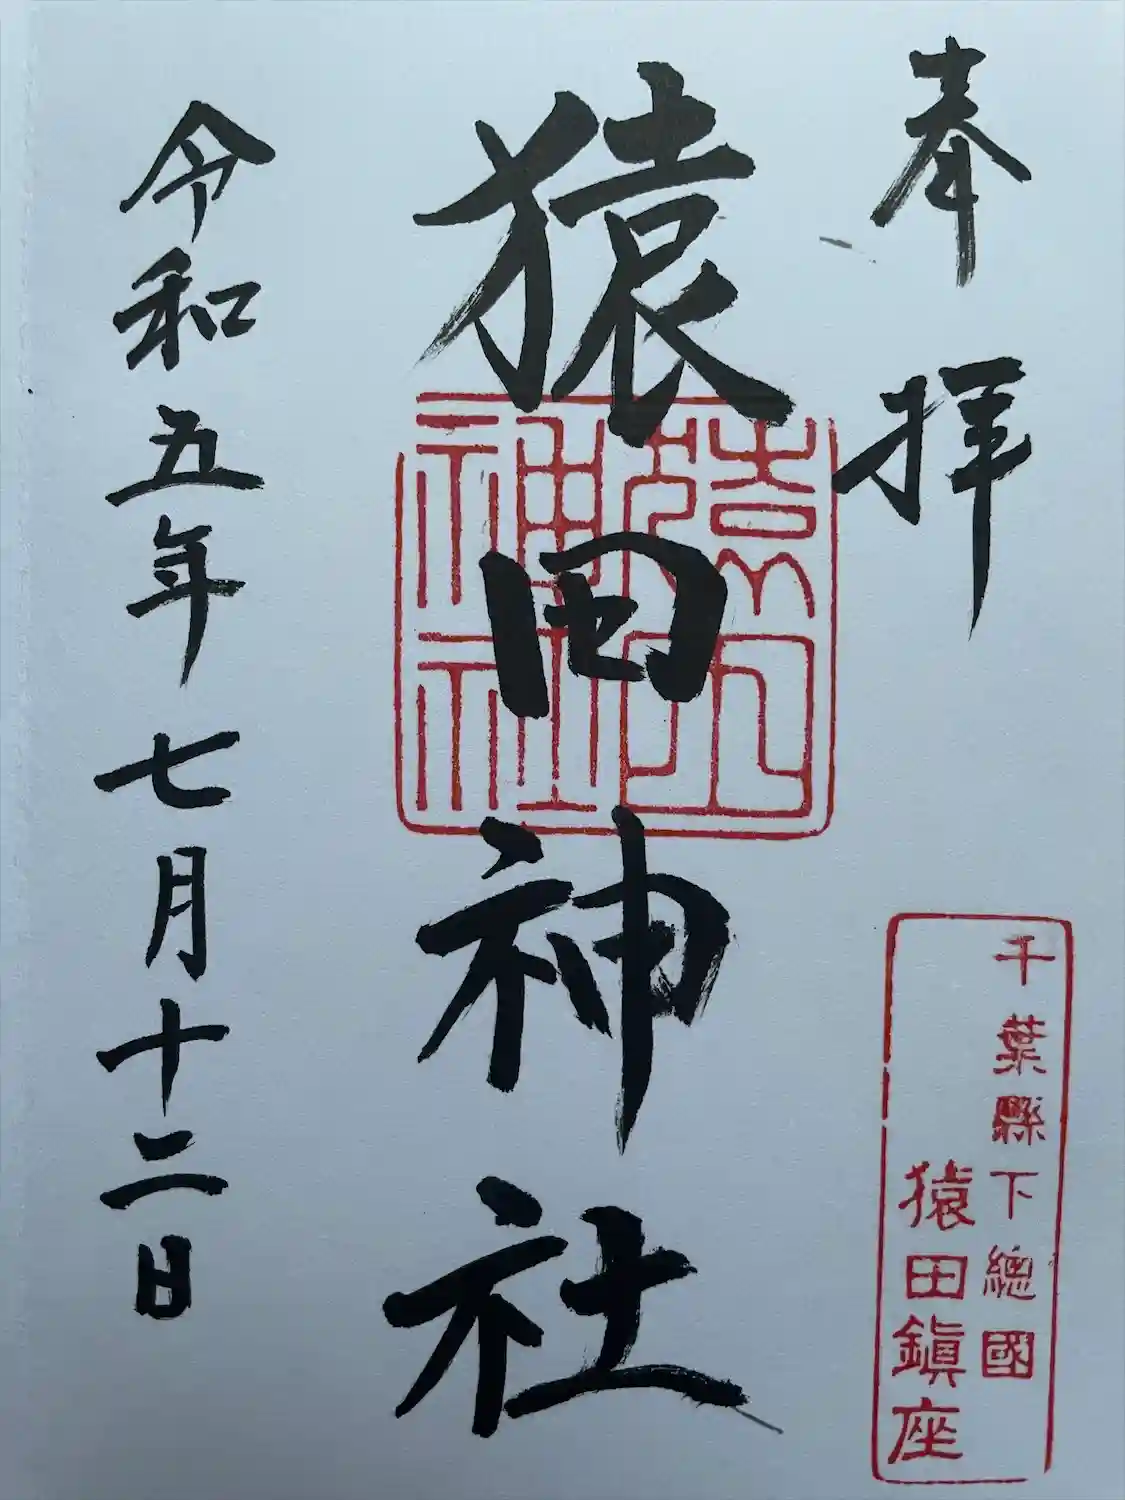 奉拝
千葉縣下總國
猿田鎭座
猿田神社
猿田神社
令和五年七月十二日